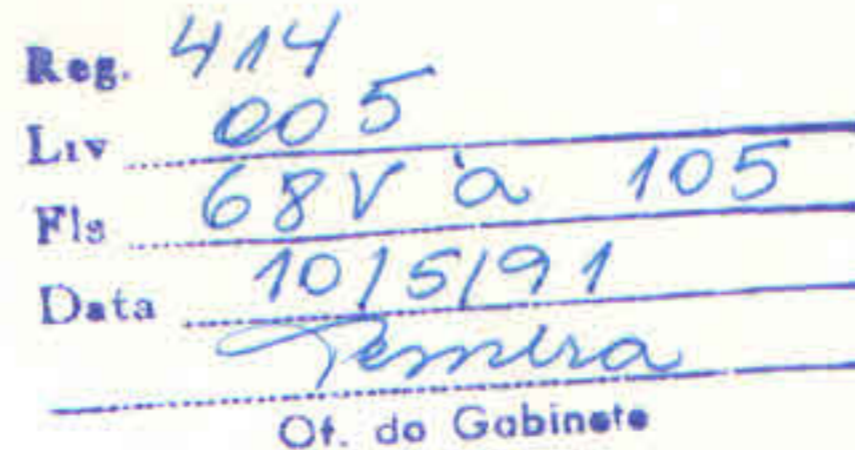 Reg. 414
Liv 005
Fls 68V à 105
Data 10/5/91
Of. do Gabinete